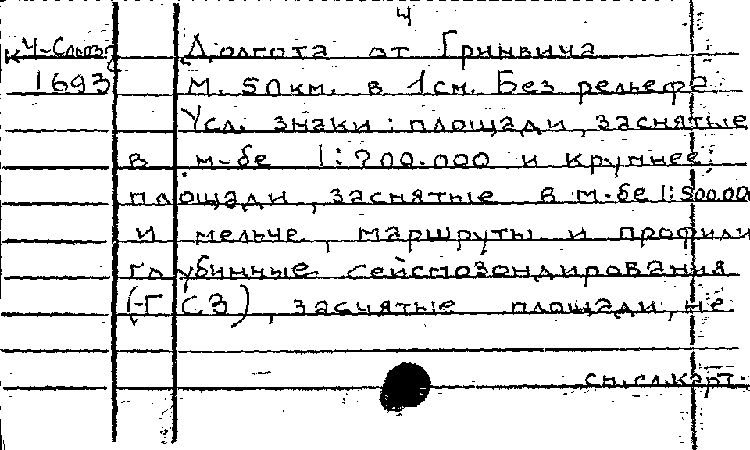 4
Долгота от Гринвича
1693 М. 50км. в 1см. Без рельефа.
Усл. знаки: площади, заснятые
в м-бе 1:200.000 и крупнее;
площади, заснятые в м-бе 1:500.000
и мельче, маршруты и профили
глубинные сейсмозондирования
(ГСЗ), заснятые площади, не
см.сл.карт.